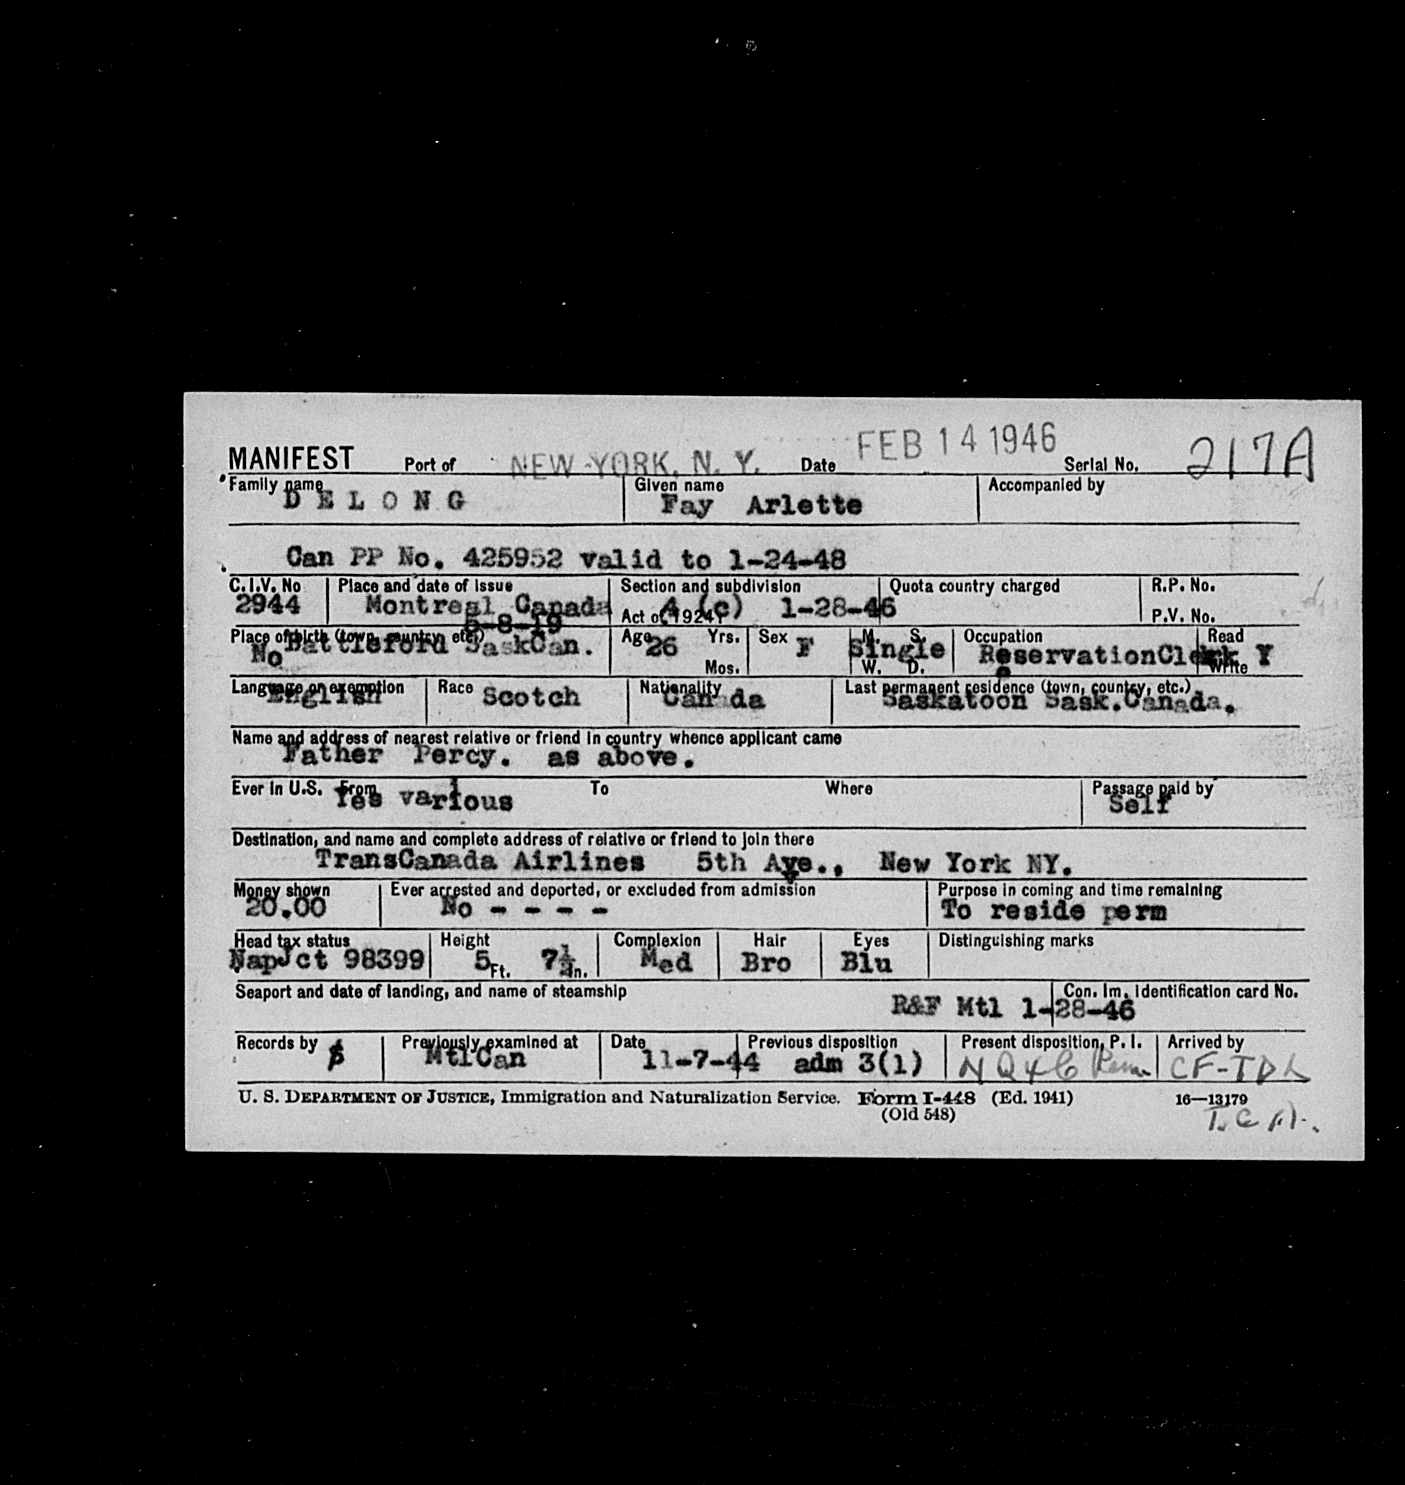 MANIFEST Port of NEW YORK, N. Y. Date FEB 14 1946 Serial No. 217A
Family name Given name Accompanied by
D E L O N G Fay Arlette
Can PP No. 425952 valid to 1-24-48
C.I.V. No Place and date of issue Section and subdivision Quota country charged R.P. No.
2944 Montreal Canada Act of 1924 4 (c) 1-28-46 P.V. No.
5-8-19
Place of birth (town, country, etc.) Age 26 Yrs. Sex F M. S. Occupation Read
No Battleford SaskCan. Mos. Single W. D. ReservationClerk Write Y
Language or exemption Race Nationality Last permanent residence (town, country, etc.)
English Scotch Canada Saskatoon Sask.Canada.
Name and address of nearest relative or friend in country whence applicant came
Father Percy. as above.
Ever in U.S. From To Where Passage paid by
Yes various Self
Destination, and name and complete address of relative or friend to join there
TransCanada Airlines 5th Ave., New York NY.
Money shown Ever arrested and deported, or excluded from admission Purpose in coming and time remaining
20.00 No - - - - To reside perm
Head tax status Height Complexion Hair Eyes Distinguishing marks
NapJct 98399 5 Ft. 7½ In. Med Bro Blu
Seaport and date of landing, and name of steamship Con. Im. Identification card No.
R&F Mtl 1-28-46
Records by Previously examined at Date Previous disposition Present disposition, P. I. Arrived by
MtlCan 11-7-44 adm 3(1) N Q 4c Perm CF-TDL
U. S. DEPARTMENT OF JUSTICE, Immigration and Naturalization Service. Form I-448 (Ed. 1941) 16—13179
(Old 548) T.C.A.